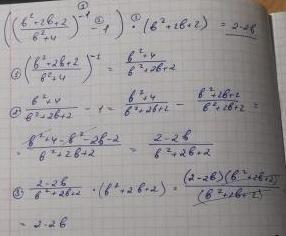 (((b²+2b+2)/(b²+4))⁻¹ - 1) · (b²+2b+2) = 2-2b
① ((b²+2b+2)/(b²+4))⁻¹ = (b²+4)/(b²+2b+2)
② (b²+4)/(b²+2b+2) - 1 = (b²+4)/(b²+2b+2) - (b²+2b+2)/(b²+2b+2) =
= (b²+4-b²-2b-2)/(b²+2b+2) = (2-2b)/(b²+2b+2)
③ (2-2b)/(b²+2b+2) · (b²+2b+2) = ((2-2b)(b²+2b+2))/(b²+2b+2)
= 2-2b